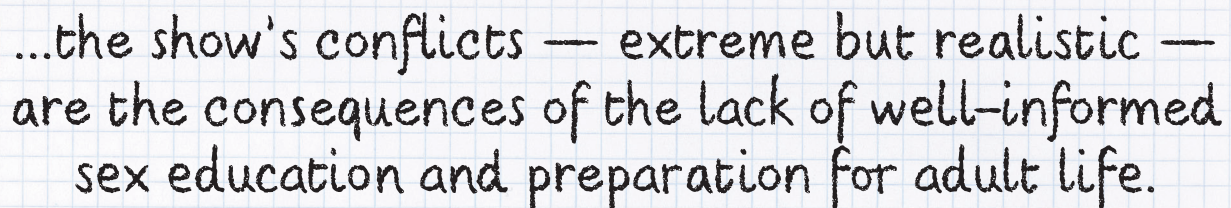 ...the show's conflicts — extreme but realistic —
are the consequences of the lack of well-informed
sex education and preparation for adult life.